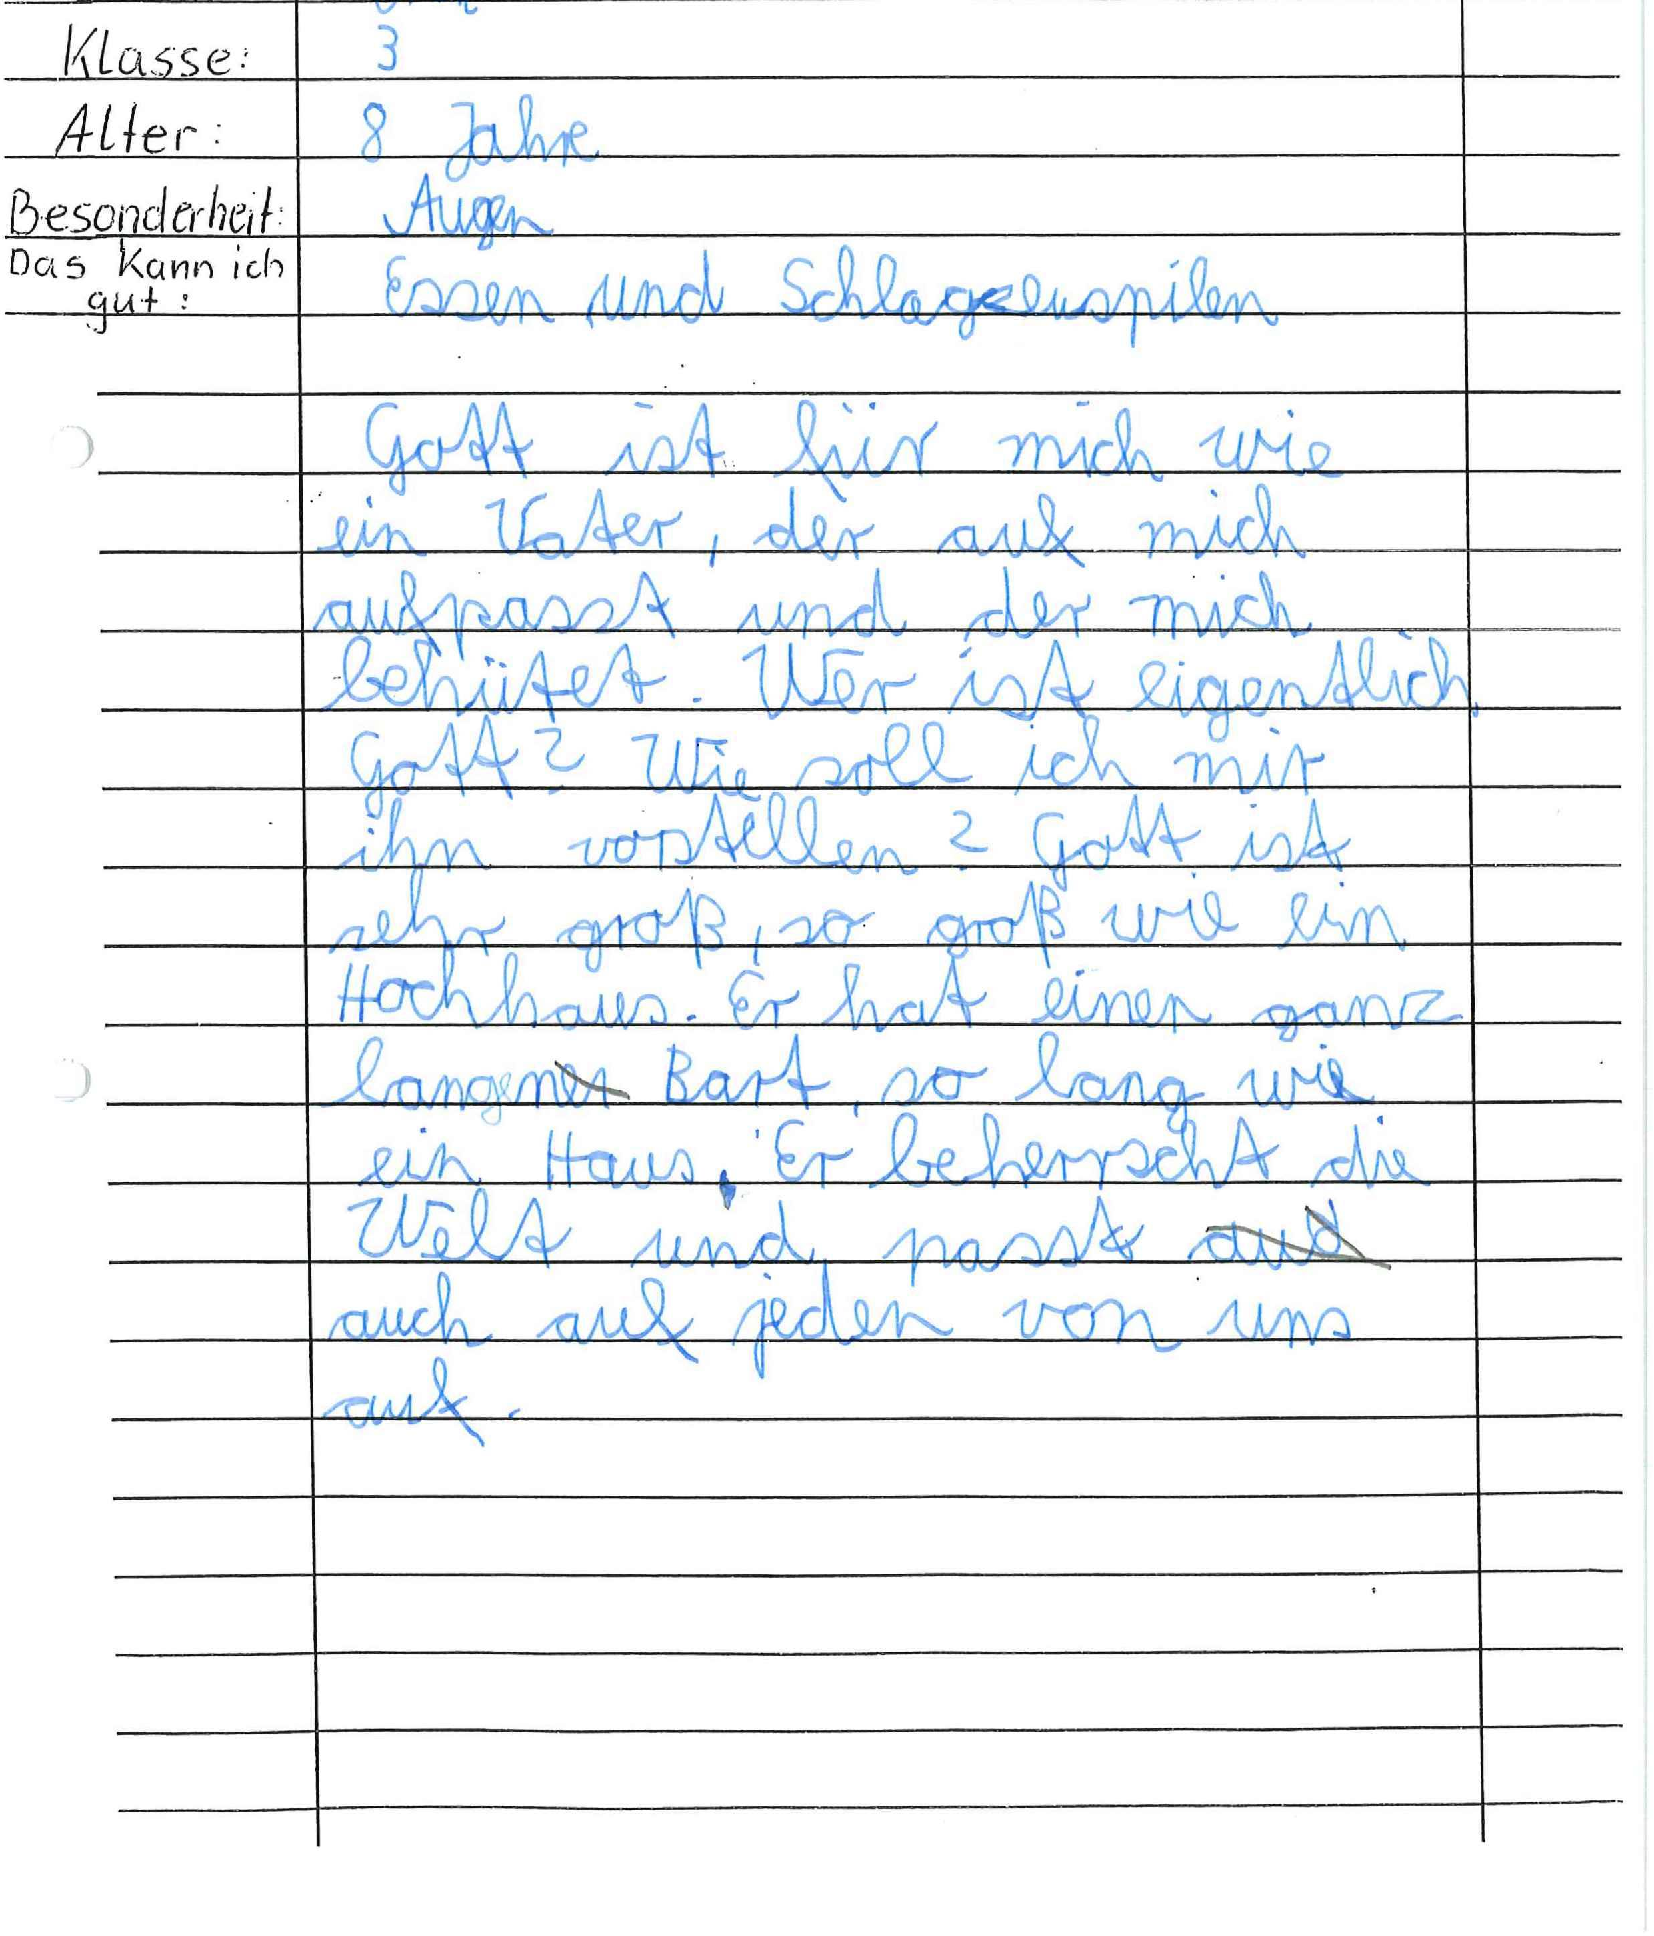 Klasse: 3
Alter: 8 Jahre
Besonderheit: Augen
Das kann ich gut: Essen und
Gott ist für mich wie
ein Vater, der auf mich
aufpasst und der mich
behütet. Wer ist eigentlich
Gott? Wie soll ich mir
ihn vorstellen? Gott ist
sehr groß, so groß wie ein
Hochhaus. Er hat einen ganz
langen Bart, so lang wie
ein Haus. Er beherrscht die
Welt und passt
auch auf jeden von uns
auf.